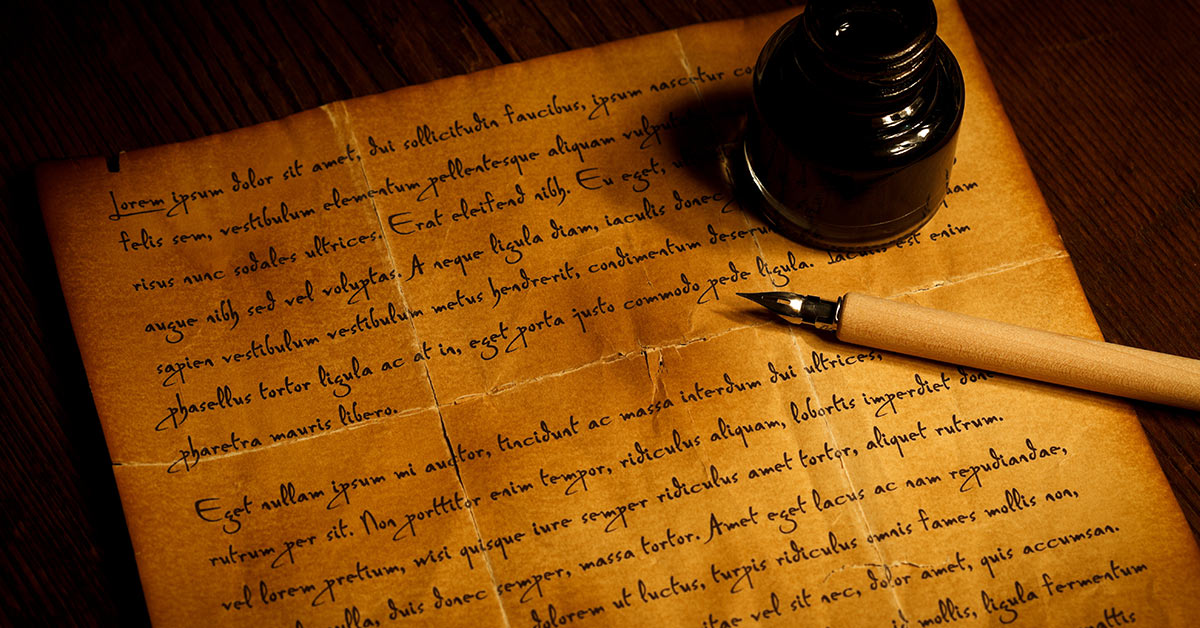 Lorem ipsum dolor sit amet, dui sollicitudin faucibus, ipsum nascetur
felis sem, vestibulum elementum pellentesque aliquam
risus nunc sodales ultrices. Erat eleifend nibh. Eu eget,
augue nibh sed vel voluptas. A neque ligula diam, iaculis donec
sapien vestibulum vestibulum metus hendrerit, condimentum
phasellus tortor ligula ac at in, eget porta justo commodo pede ligula. est enim
pharetra mauris libero.
Eget nullam ipsum mi auctor, tincidunt ac massa interdum dui ultrices,
rutrum per sit. Non porttitor enim tempor, ridiculus aliquam, lobortis imperdiet
vel lorem pretium, wisi quisque iure semper ridiculus amet tortor, aliquet rutrum.
duis donec semper, massa tortor. Amet eget lacus ac nam repudiandae,
dolorem ut luctus, turpis ridiculus omnis fames mollis non,
vel sit nec, dolor amet, quis accumsan.
mollis, ligula fermentum